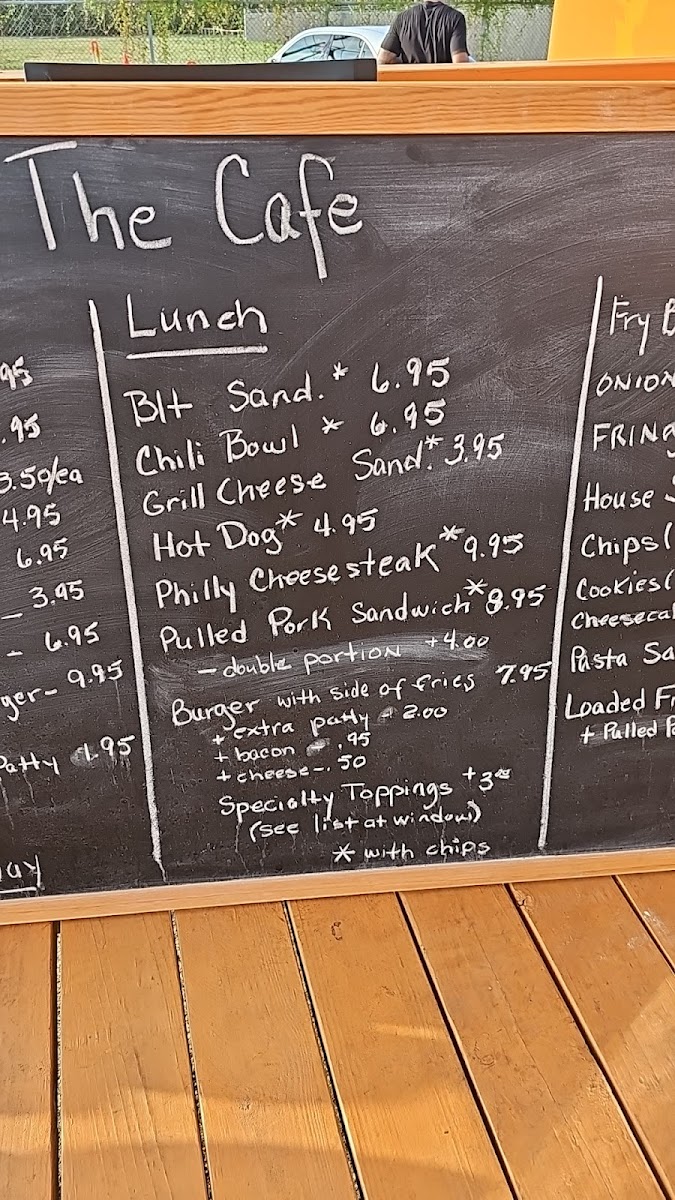 The Cafe
95
.95
3.50/ea
4.95
6.95
- 3.95
- 6.95
ger- 9.95
Patty 1.95
ay
Lunch
Blt Sand.* 6.95
Chili Bowl * 6.95
Grill Cheese Sand.* 3.95
Hot Dog* 4.95
Philly Cheesesteak* 9.95
Pulled Pork Sandwich* 8.95
- double portion +4.00
Burger with side of fries 7.95
+ extra patty - 2.00
+ bacon - .95
+ cheese - .50
Specialty Toppings +3.00
(see list at window)
* with chips
Fry B
ONION
FRING
House S
Chips (
Cookies (
Cheesecak
Pasta Sa
Loaded Fr
+ Pulled Po